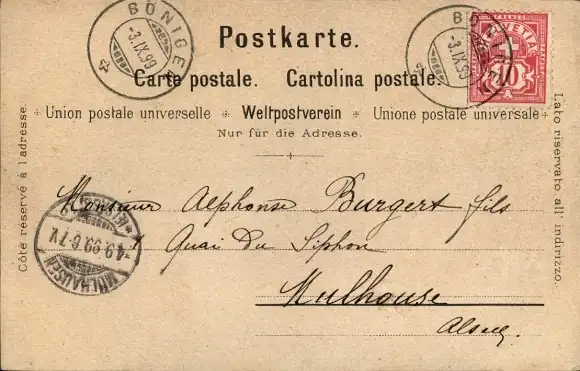 BÖNIGEN
-3.IX.99
BÖNIGEN
-3.IX.99
FRANCO
HELVETIA
10
Postkarte.
Carte postale. Cartolina postale.
Union postale universelle Weltpostverein Unione postale universale
Nur für die Adresse.
Côté réservé à l'adresse.
Lato riservato all' indirizzo.
Monsieur Alphonse Burgert fils
Quai du Siphon
Mulhouse
Alsace
MÜLHAUSEN
4.9.99.6-7V.